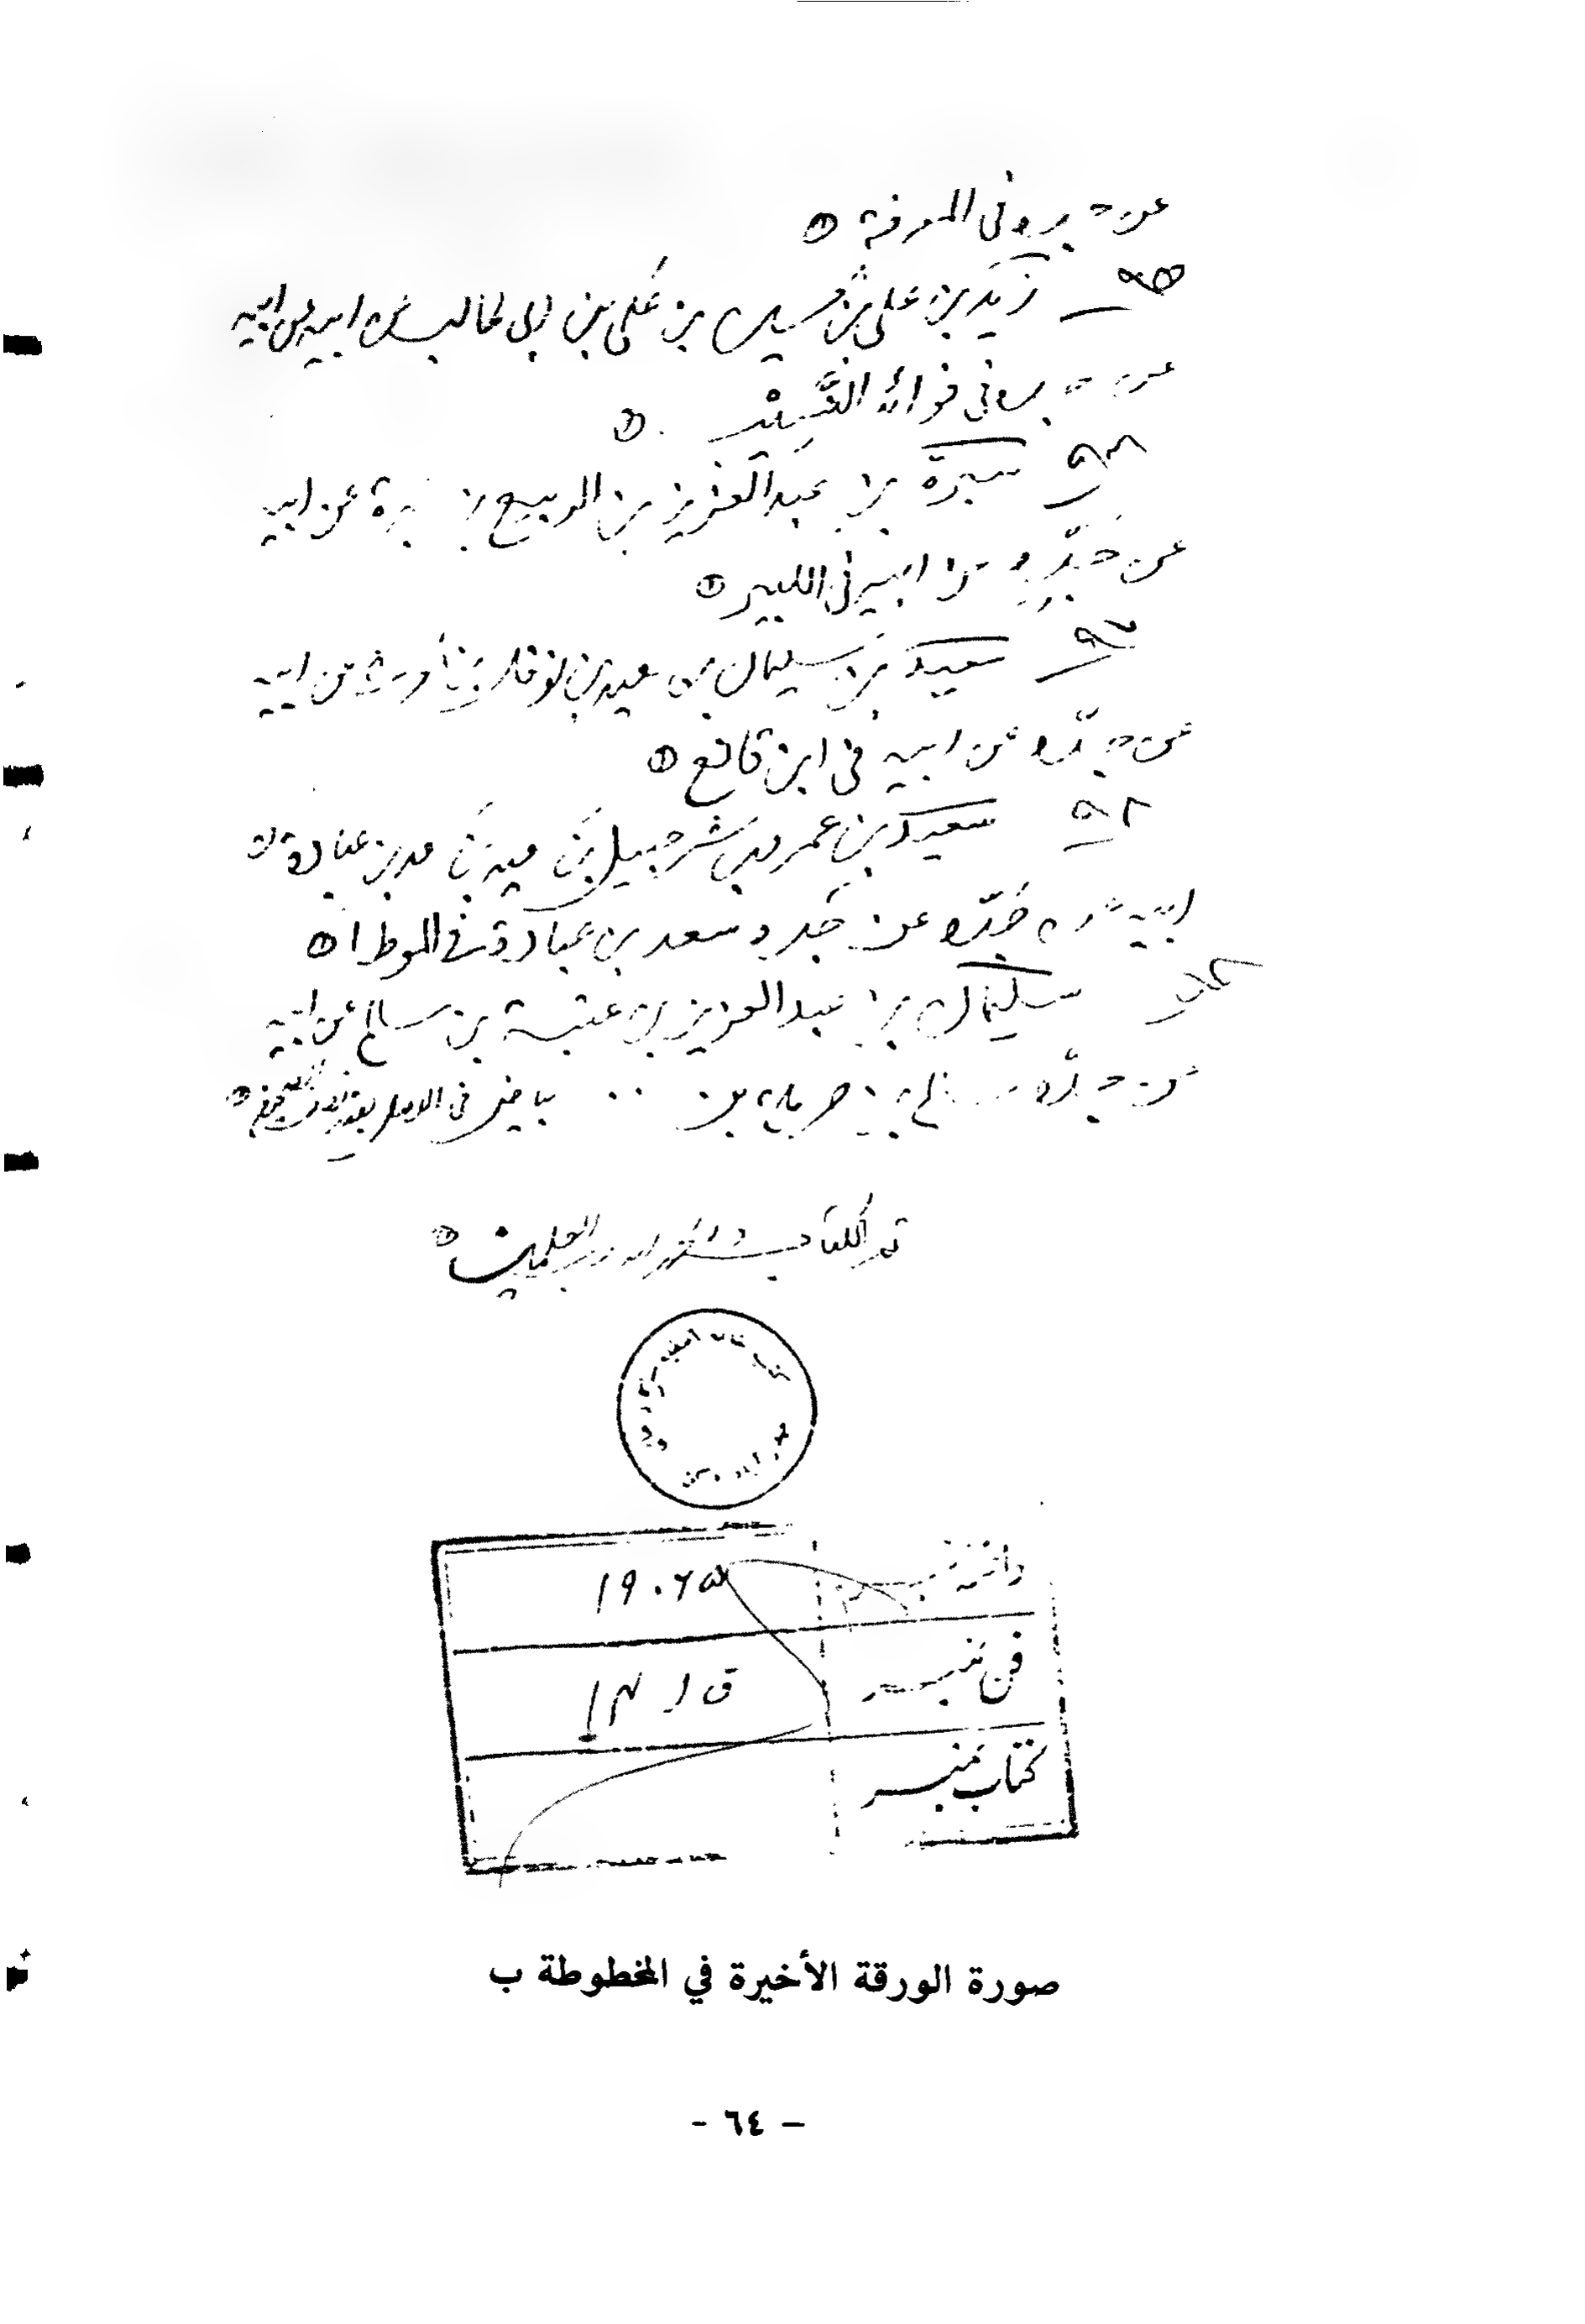 عن جده في المعرفة
٩٥ زيد بن علي بن حسين بن علي بن ابي طالب عن ابيه عن ابيه
عن جده في فوائد
٩٦ سبرة بن عبد العزيز بن الربيع بن سبرة عن ابيه
عن جده عن ابيه في الكبير
٩٧ سعيد بن سليمان بن سعيد بن نوفل بن عن ابيه
عن جده عن ابيه في ابن قانع
٩٨ سعيد بن عمرو بن شرحبيل بن سعيد بن سعد بن عبادة عن
ابيه عن جده عن جد سعد بن عبادة في الموطا
سليمان بن عبد العزيز بن عتبة بن سالم عن ابيه
عن جده سالم بن بن .. بياض في الاصل
تم الكتاب والحمد لله رب العلمين
داخله نمبر ١٩٠٦٥
فن نمبر ١٣١ ق
كتاب نمبر
صورة الورقة الأخيرة في المخطوطة ب
- ٦٤ -